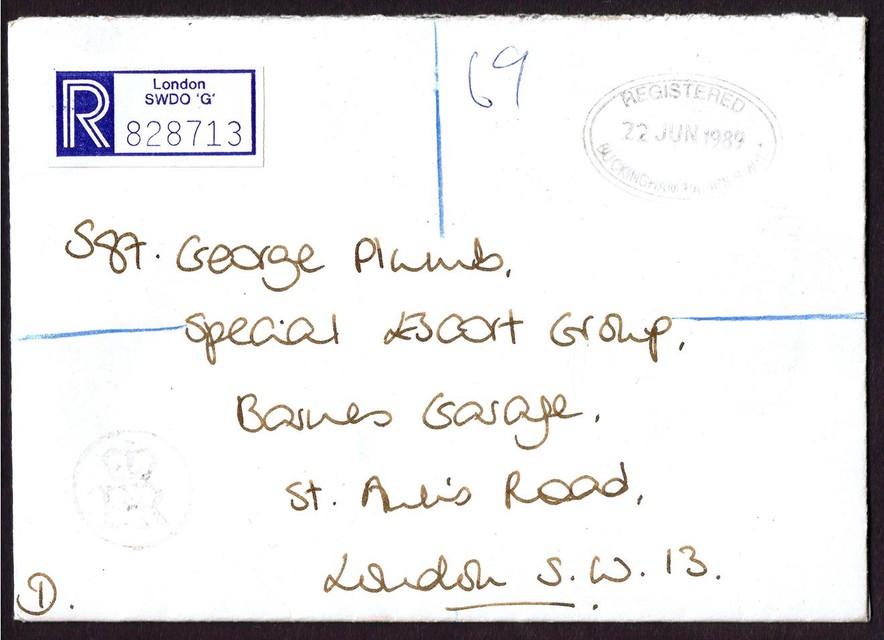 London
SWDO 'G'
R
828713
69
REGISTERED
22 JUN 1989
BUCKINGHAM
Sgt. George Plumb,
Special Escort Group,
Barnes Garage,
St. Ann's Road,
London S.W. 13.
1.